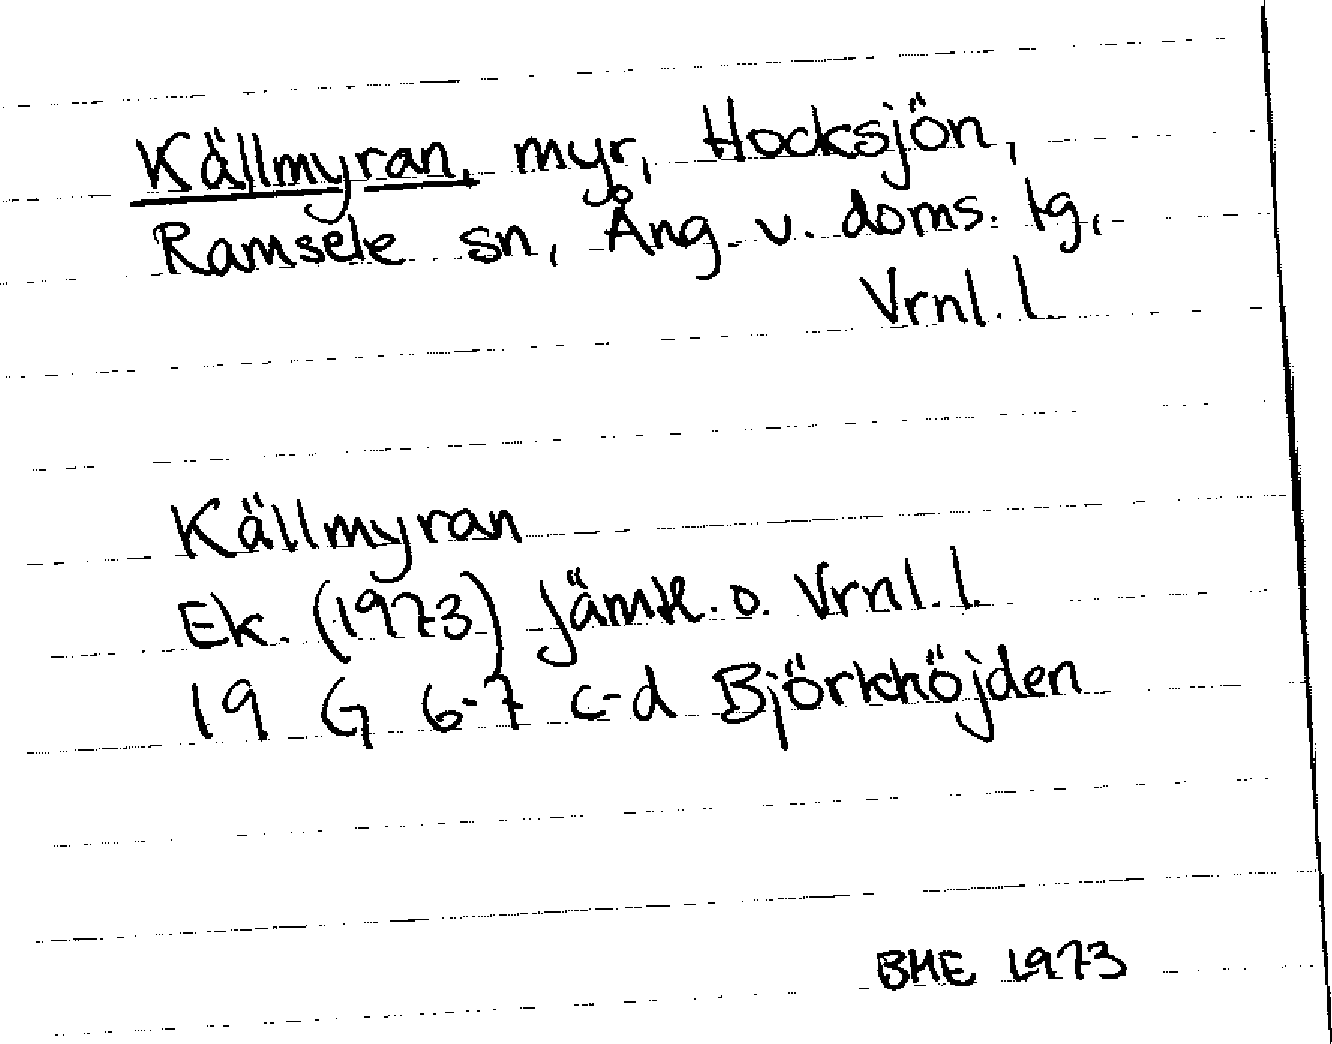 Källmyran, myr, Hocksjön,
Ramsele sn, Ång. v. doms. tg,
Vrnl. l.
Källmyran
Ek. (1973) Jämtl. o. Vrnl. l.
19 G 6-7 c-d Björkhöjden
BHE 1973